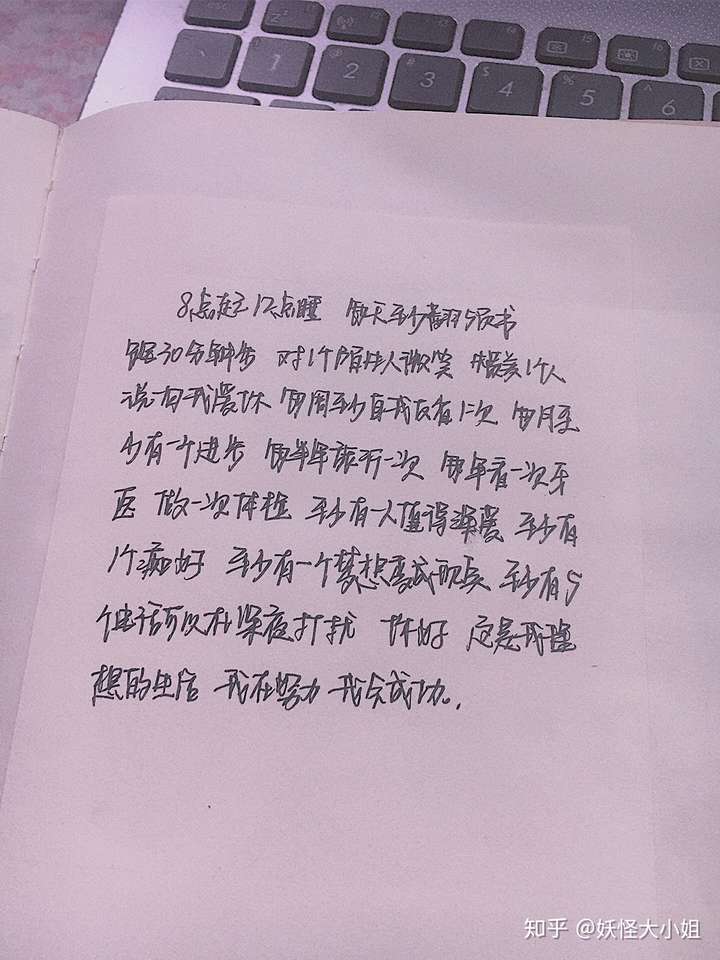 1
2
#
3
$
4
%
5
6
8点起 12点睡 每天至少翻5页书
跑30分钟步 对1个陌生人微笑 赞美1个人
说句我爱你 每周至少自我反省1次 每月至
少有一个进步 每半年旅行一次 每年看一次牙
医 做一次体检 至少有一人值得深爱 至少有
1个癖好 至少有一个梦想变成现实 至少有5
个电话可以在深夜打扰 你好 这是我理
想的生活 我在努力 我会成功。
知乎 @妖怪大小姐